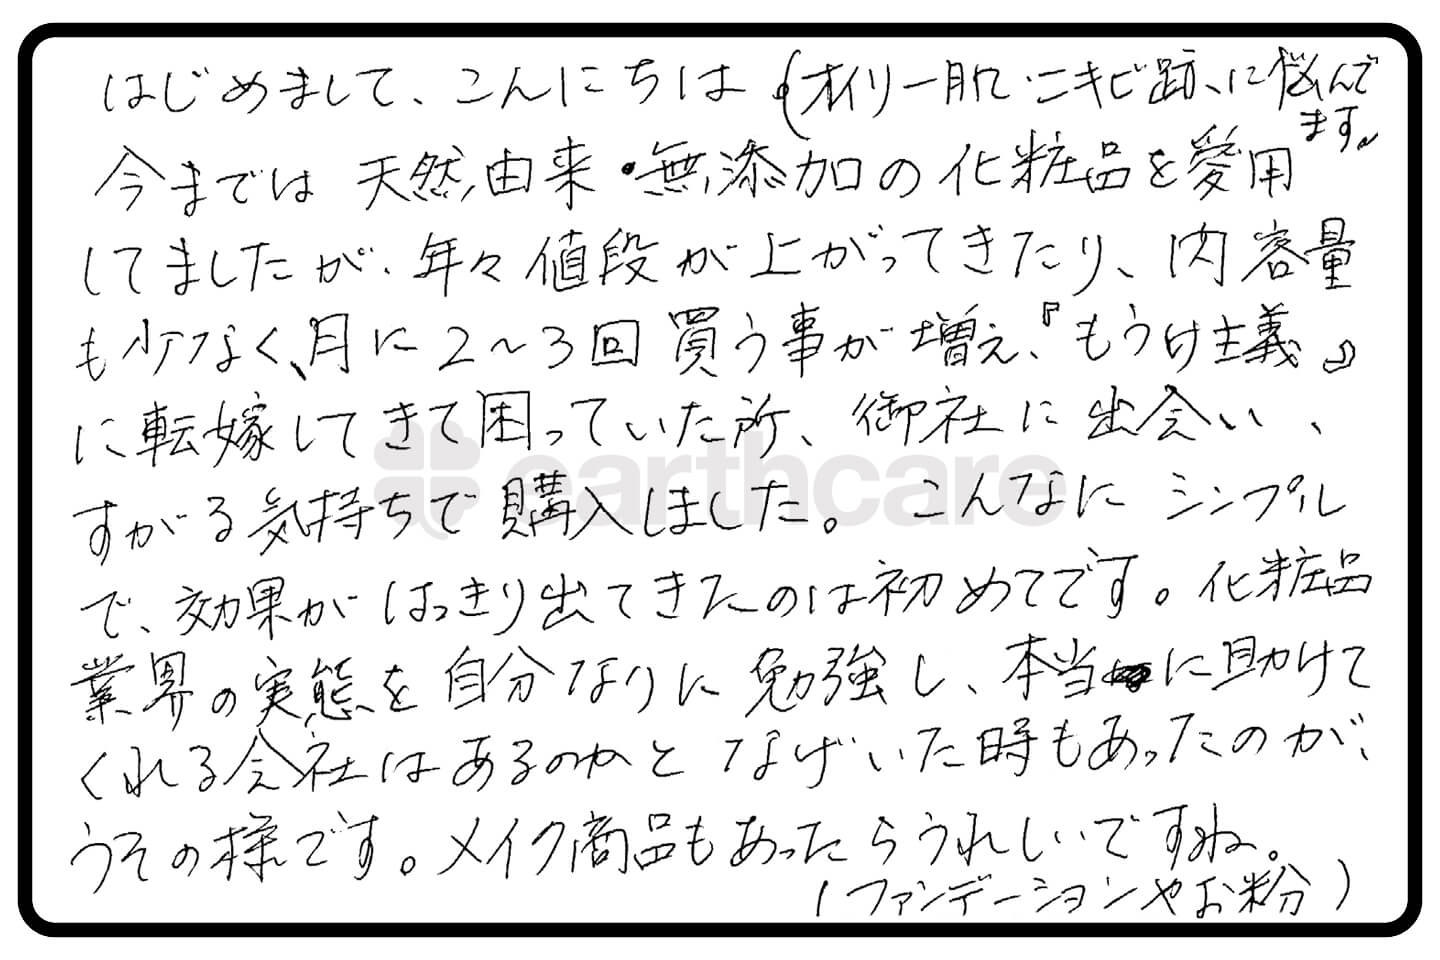 はじめまして、こんにちは(オイリー肌・ニキビ跡、に悩んで
ます。
今までは 天然由来・無添加の化粧品を愛用
してましたが、年々値段が上がってきたり、内容量
も少なく、月に2〜3回買う事が増え、『もうけ主義』
に転嫁してきて困っていた所、御社に出会い、
すがる気持ちで購入しました。こんなにシンプル
で、効果がはっきり出てきたのは初めてです。化粧品
業界の実態を自分なりに勉強し、本当に助けて
くれる会社はあるのかとなげいた時もあったのが、
うその様です。メイク商品もあったらうれしいですね。
(ファンデーションやお粉)
earthcare